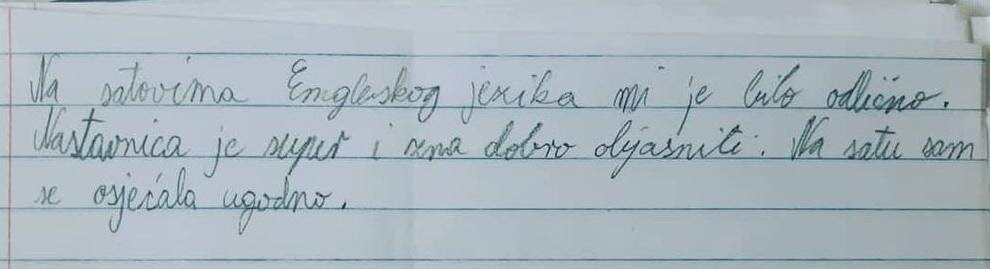 Na satovima Engleskog jezika mi je bilo odlično.
Nastavnica je super i zna dobro objasniti. Na satu sam
se osjećala ugodno.